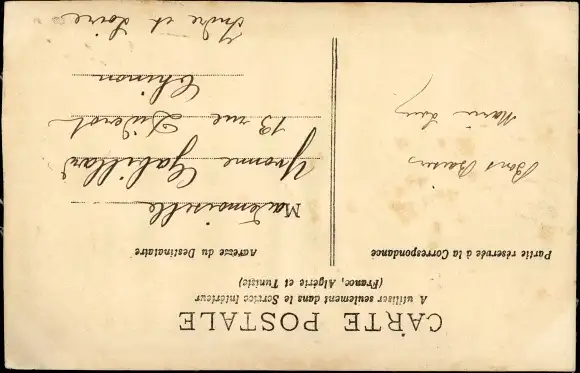 CARTE POSTALE
A utiliser seulement dans le Service Intérieur
(France, Algérie et Tunisie)
Partie réservée à la Correspondance
Adresse du Destinataire
Bons Baisers
Marie Louise
Mademoiselle
Yvonne Gabillard
13 rue Diderot
Chinon
Indre et Loire